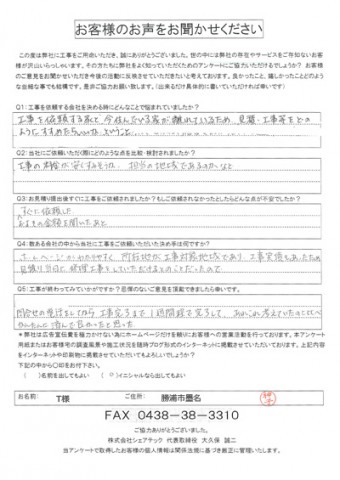 お客様のお声をお聞かせください
この度は弊社に工事をご用命いただき、誠にありがとうございました。世の中には弊社の存在やサービスをご存知ないお客
様が沢山いらっしゃいます。その方たちに弊社をよく知っていただくためのアンケートにご協力いただけるでしょうか？ お客様
のご意見をお聞かせいただき今後の活動に反映させていただきたいと考えております。良かったこと、嬉しかったことどのよう
な些細な事でも結構です。是非ご協力お願い致します。（出来るだけ具体的に書いていただければ幸いです）
Q1：工事を依頼する会社を決める時にどんなことで悩まれていましたか？
工事を依頼する家と今住んでいる家が離れているため、見積・工事等をどの
ようにすすめたらいいか、ということ
Q2：当社にご依頼いただく際にどのような点を比較・検討されましたか？
工事の料金が安くすみそうか、担当の地域であるのか、など
Q3：お見積り提出後すぐに工事をご依頼されましたか？もしご依頼されなかったとしたらどんな点が不安でしたか？
すぐに依頼した
およその金額を聞いたあと
Q4：数ある会社の中から当社に工事をご依頼いただいた決め手は何ですか？
ホームページがわかりやすく、所在地が工事対象地域であり、工事実績もあったため
見積り当日に、修理工事をしていただけるとのことだったので
Q5：工事が終わってみていかがですか？忌憚のないご意見を頂戴できましたら幸いです。
問合せの電話をしてから工事完了まで1週間程で完了して、あれこれ考えていたことに
かんたんに済んで良かったと思った
＊弊社は広告宣伝費を極力かけない為にホームページだけを頼りにお客様への営業活動を行っております。本アンケート
用紙またはお客様宅の調査風景や施工状況を随時ブログ形式のインターネットに掲載させていただいております。上記内容
をインターネットや印刷物に掲載させていただいてもよろしいでしょうか？
下記の中から〇印をお付け下さい。
（　）名前を出してもよい　（〇）イニシャルなら出してもよい
お名前： T様 ご住所： 勝浦市墨名
FAX 0438-38-3310
ご協力ありがとうございました。
株式会社シェアテック 代表取締役 大久保 誠二
当アンケートで取得したお客様の個人情報は関係法規に基づき厳正に管理いたします。